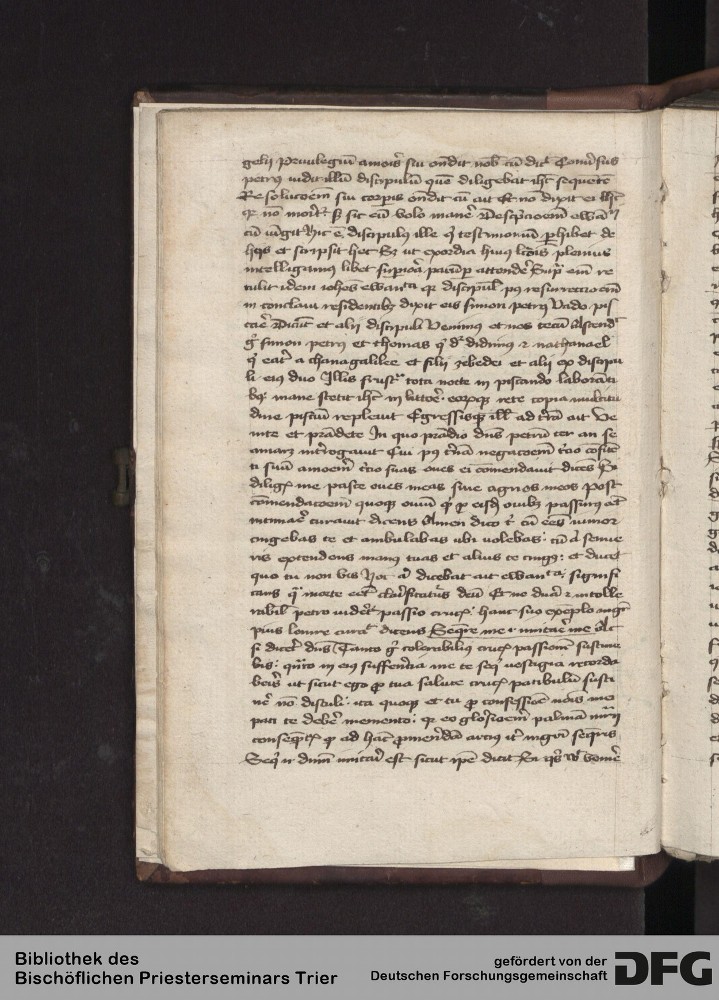 gelij Priuilegiū amoris sui ondit nob cū dic Conusus
petrus uidit illū discipulū quē diligebat ihc sequētē
Resolucoem sui corpis ondit cū ait Et nō dixit ei ihc
qr nō morit sic eū volo manē
cū iūgit Hic ē discipulus ille q testimoniū phibet de
hijs et scripsit hec Et ut exordia huius plenius
intelligamus libet attendē Sup em re
tulit idem iohes ewanta qr discipul pus resurrectionem
in conclaui residentibus dixit eis simon petrus Uado pis
cari Dicūt et alij discipuli Venimus et nos tecū Ascend
g simon petrus et thomas q dr didimus et nathanael
q erat a chanagalilee et filij zebedei et alij ex discipu
li eius duo Illis frustra tota nocte in piscando laboranti
bus mane stetit ihc in littore eorumque rete copia multitu
dine pisciū repleuit Egressisque ill ad trā ait Ve
nite et prādete In quo prādio dns petrū ter an se
amaret introgauit Cui pus trinā negacoem tcio cofitēt
ti suā amoem tcio suas oues ei comendauit dicēs Si
diligis me pasce oues meas siue agnos meos Post
comendacoem quoque ouiū q p eisdem ouibus passurus eēt
intimare curauit dicens Amen dico t cū ees iunior
cingebas te et ambulabas ubi uolebas: cū a senue
ris extendens manus tuas et alius te cinget et ducet
quo tu non vis Hoc a dicebat ait ewanta: signifi
cans q morte eet clarificaturus deū Et ne dura et intolle
rabil petro uideret passio crucis: hanc suo exemplo mgr
pius lenire curat dicens Sequere me i imitare me Ac
si dicet dns Tanto g tolerabilius crucis passionem sustine
bis: quāto in eius sufferentia me te sequi uestigia recorda
beris ut sicut ego p tua salute crucis patibulū susti
nere nō distuli: ita quoque et tu p confessiōe nois mei
pati te debere memento: qr eo gloriosiorem palmā
consequeris q ad hac pmerendā artius it mgri sequeris
Sequi dnm imitari est sicut ipe dicit Si
Bibliothek des
Bischöflichen Priesterseminars Trier
gefördert von der
Deutschen Forschungsgemeinschaft
DFG